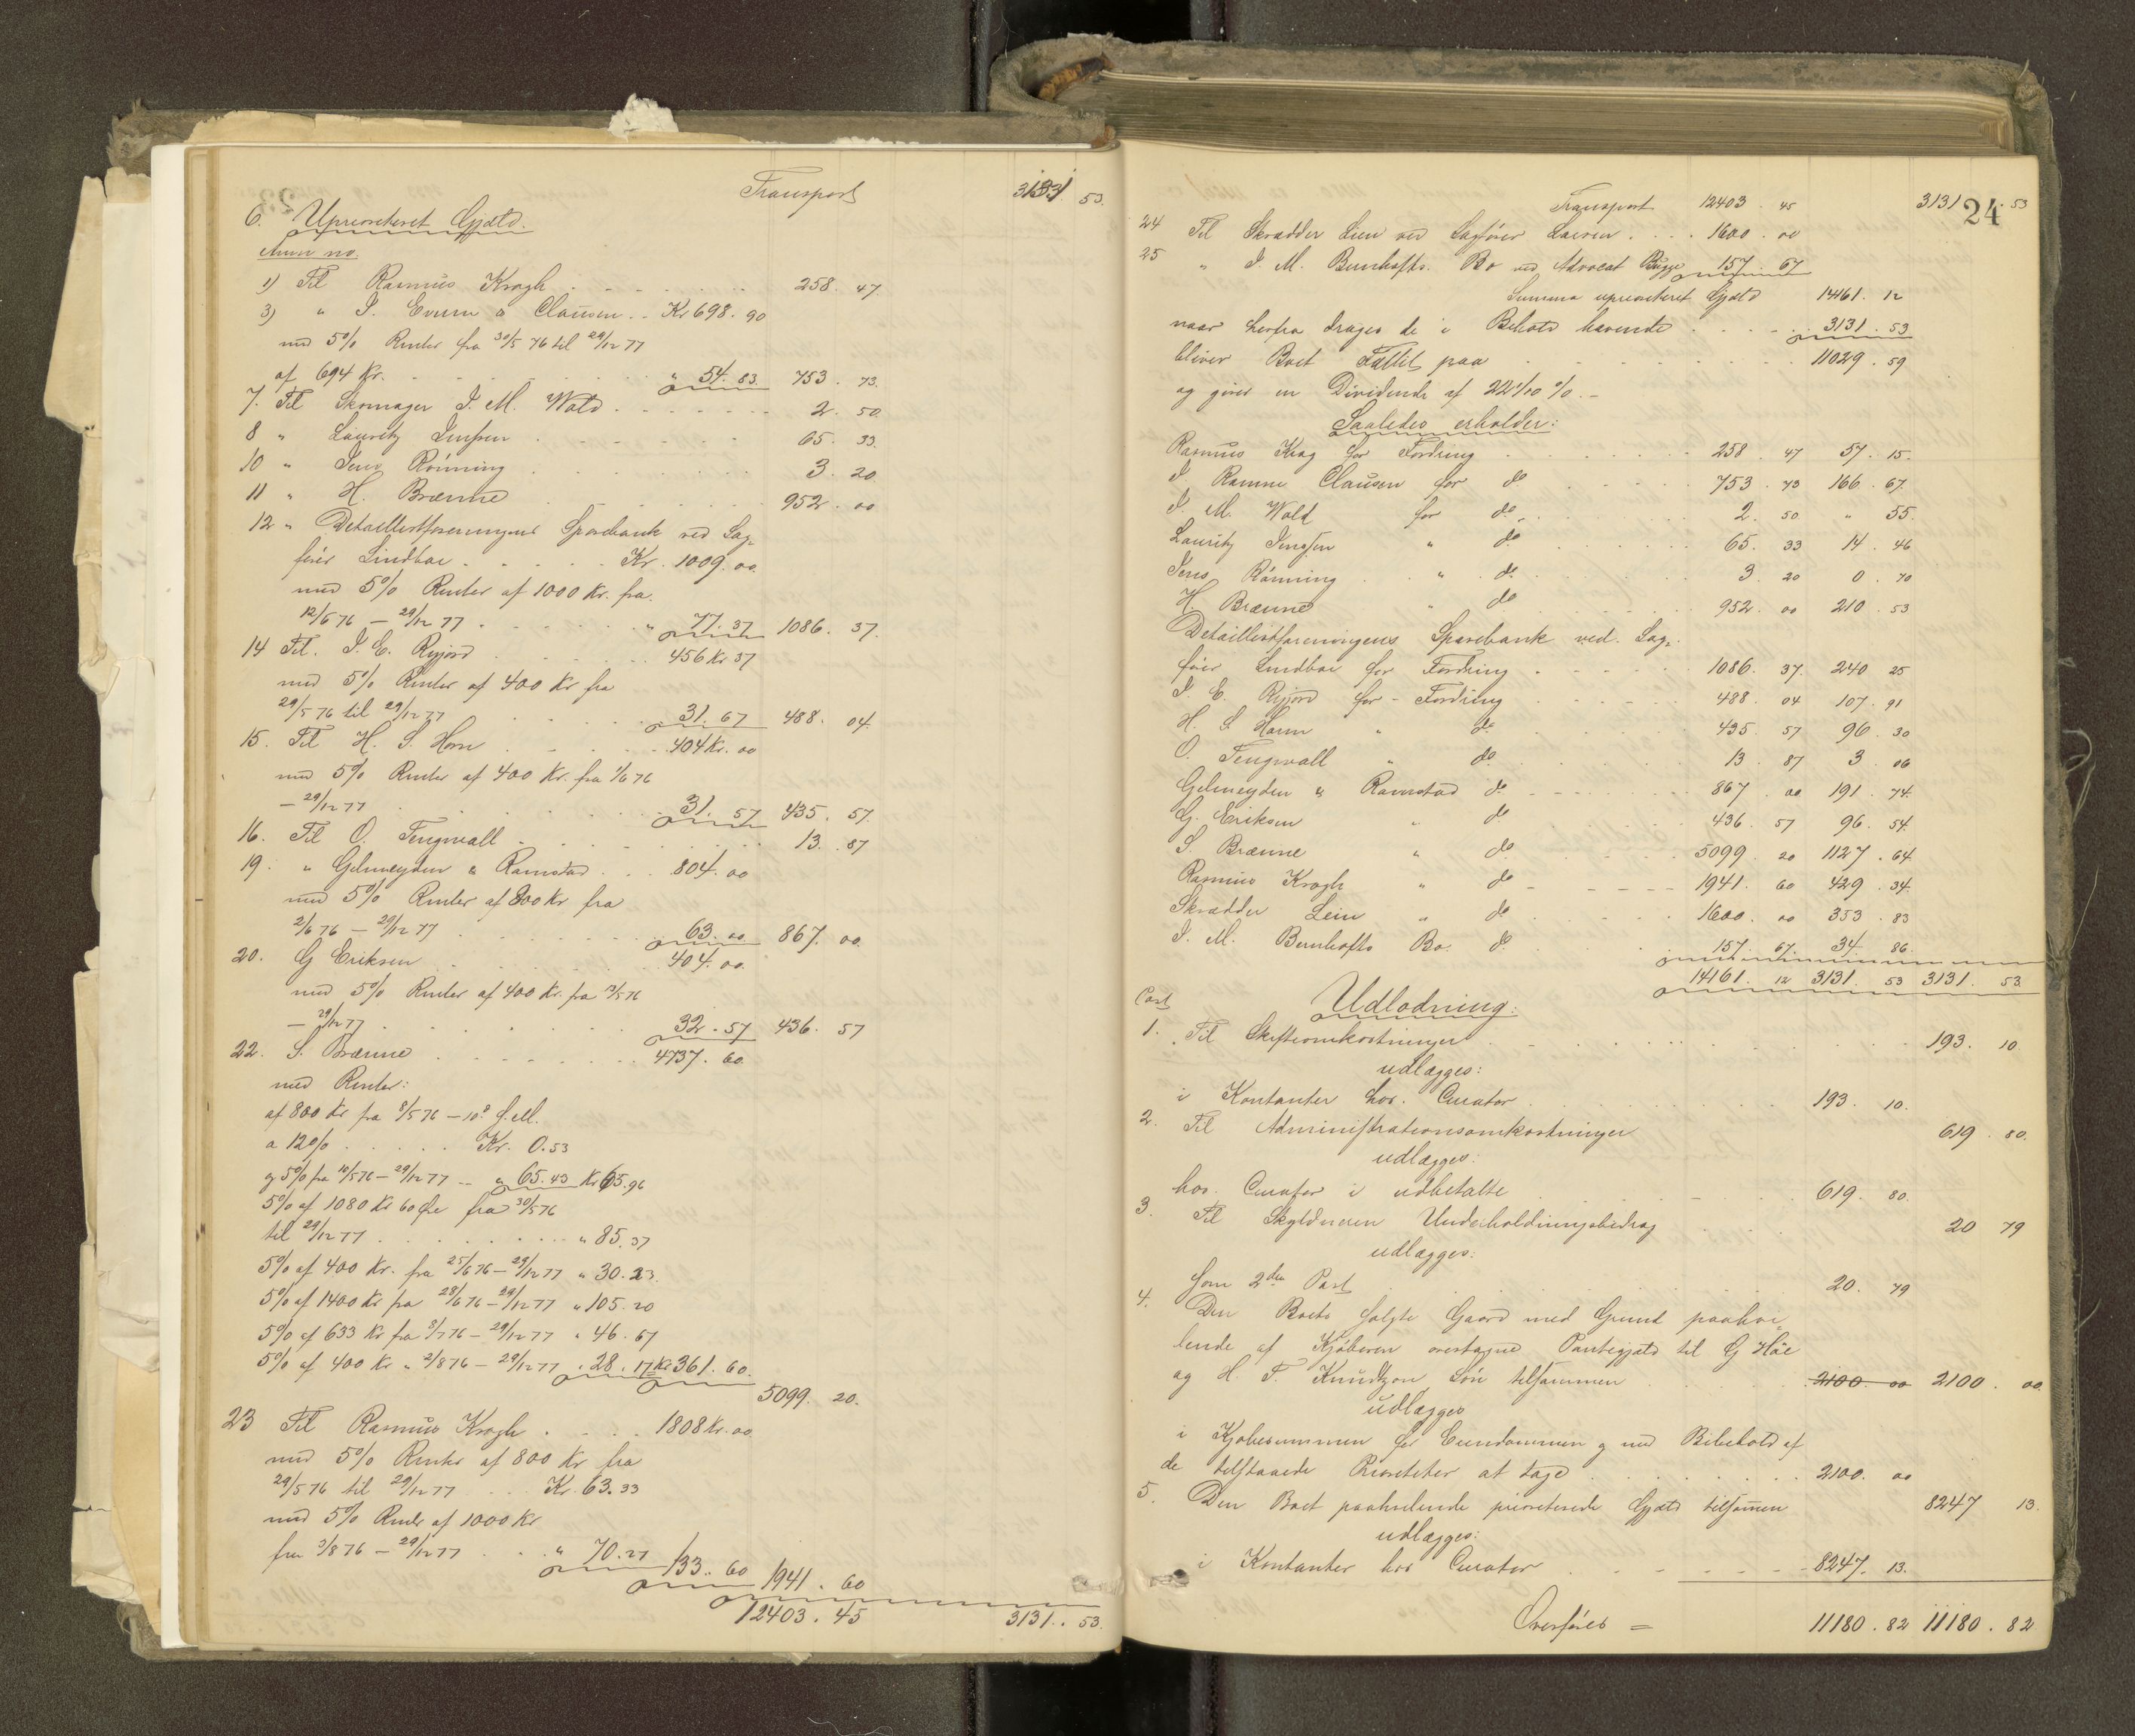 Transport 3131 53.
6. Uprioriteret Gjæld.
Anm no.
1) Til Rasmus Krogh 258. 47.
3) " I. & Clausen Kr 698. 90
med 5% Renter fra 30/5 76 til 29/12 77
af 694 Kr. " 54. 83. 753. 73.
7. Til Skomager I. M. Wold 2. 50
8 " Lauritz Jenssen 65. 33.
10 " Jens Rönning 3. 20
11 " H. Brænne 952. 00
12 " Detaillistforeningens Sparebank ved Sag-
förer Lindboe Kr. 1009. 00.
med 5% Renter af 1000 Kr. fra.
12/6 76 – 29/12 77 " 77. 37 1086. 37.
14 Til. I. E. Rejord 456 Kr 37
med 5% Renter af 400 Kr fra
29/5 76 til 29/12 77 31. 67 488. 04.
15. Til H. S. Horn 404 Kr. 00
med 5% Renter af 400 Kr. fra 1/6 76
– 29/12 77 31. 57 435. 57.
16. Til O. Tengwall 13. 87
19. " Gelmeyden & Ramstad 804. 00
med 5% Renter af 800 Kr fra
2/6 76 – 29/12 77 63. 00 867. 00.
20. G Eriksen 404. 00.
med 5% Renter af 400 Kr. fra 13/5 76
– 29/12 77 32. 57 436. 57
22. S. Brænne 4737. 60.
med Renter:
af 800 Kr fra 8/5 76 – 10de s. M.
a 12% Kr. 0.53
og 5% fra 10/5 76 – 29/12 77 – " 65. 43 Kr 65.96
5% af 1080 Kr 60 Øre fra 30/5 76
til 29/12 77 " 85. 37
5% af 400 Kr. fra 25/6 76 – 29/12 77 " 30. 23.
5% af 1400 Kr fra 28/6 76 – 29/12 77 " 105. 20
5% af 633 Kr fra 8/7 76 – 29/12 77 " 46. 67
5% af 400 Kr " 2/8 76 – 29/12 77 " 28. 17 Kr 361. 60.
5099. 20.
23 Til Rasmus Krogh 1808 Kr. 00
med 5% Renter af 800 Kr fra
29/5 76 til 29/12 77 Kr. 63. 33
med 5% Renter af 1000 Kr
fra 3/8 76 – 29/12 77 " 70. 27 133. 60 1941. 60
12403. 45 3131. 53.
24
Transport 12403. 45 3131. 53
24 Til Skrædder Lien ved Sagförer Larsen 1600. 00
25 " I. M. Bernhofts. Bo ved Advocat Bugge 157. 67
Summa uprioriteret Gjæld 14161. 12
naar herfra drages de i Behold havende 3131. 53
bliver Boet Fallit paa 11029. 59
og giver en Dividende af 22 1/10 %. –
Saaledes erholder:
Rasmus Krog for Fordring 258. 47 57. 15.
I. Clausen for do 753. 73 166. 67.
I. M. Wold for do 2. 50 " 55.
Lauritz Jenssen " do 65. 33 14. 46
Jens Rönning " do 3. 20 0. 70
H. Brænne " do 952. 00 210. 53
Detaillistforeningens Sparebank ved. Sag-
förer Lindboe for Fordring 1086. 37. 240 25
I. E. Rejord for – Fordring 488. 04 107. 91
H. S. Horn " do 435. 57 96. 30
O. Tengwall " do 13. 87 3. 06
Gelmeyden & Ramstad do 867. 00 191. 74.
G. Eriksen " do 436. 57 96. 54.
S. Brænne " do 5099. 20 1127. 64.
Rasmus Krogh " do 1941. 60 429. 34.
Skrædder Lein " do 1600. 00 353. 83
I. M. Bernhofts Bo. do 157. 67. 34. 86.
14161. 12 3131. 53 3131. 53
Post Udlodning:
1. Til Skifteomkostninger 193. 10.
udlægges:
i Kontanter hos. Curator 193. 10.
2. Til Administrationsomkostninger 619. 80.
udlægges:
hos. Curator i udbetalte 619. 80.
3. Til Skyldneren Underholdningsbidrag 20 79
udlægges:
som 2den Post 20. 79
4. Den Boets solgte Gaard med Grund paahvi-
lende af Kjöberen overtagne Pantegjæld til G Höe
og H. F. Knudtzon Sön tilsammen 2100. 00 2100. 00.
udlægges
i Kjøbesummen for Eiendommen og med Bibehold af
de tilstaaede Prioriteter at tage 2100. 00
5. Den Boet paahvilende prioriterede Gjæld tilsammen 8247 13.
udlægges:
i Kontanter hos Curator 8247. 13.
Overföres = 11180. 82 11180. 82